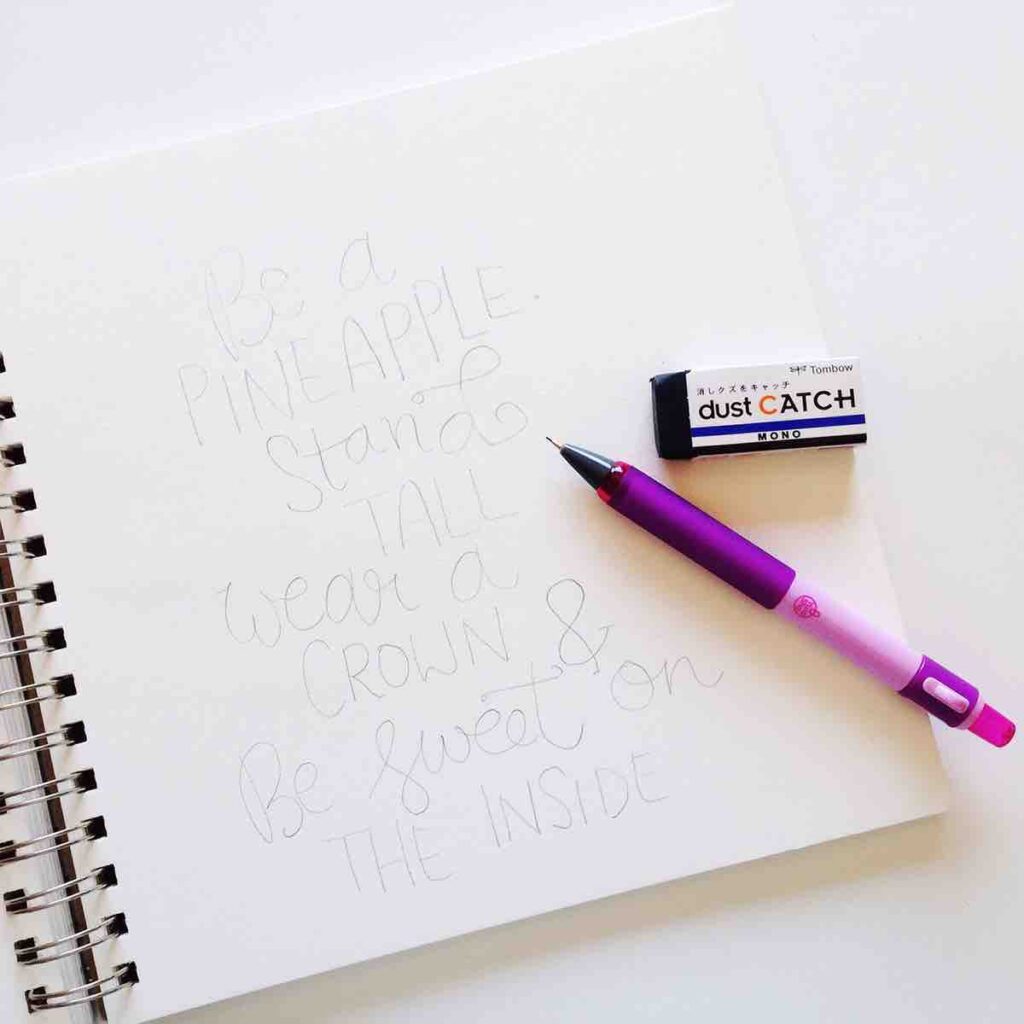 Be a
PINEAPPLE.
Stand
TALL
wear a
CROWN &
Be Sweet on
THE INSIDE
Tombow
消しクズをキャッチ
dust CATCH
MONO